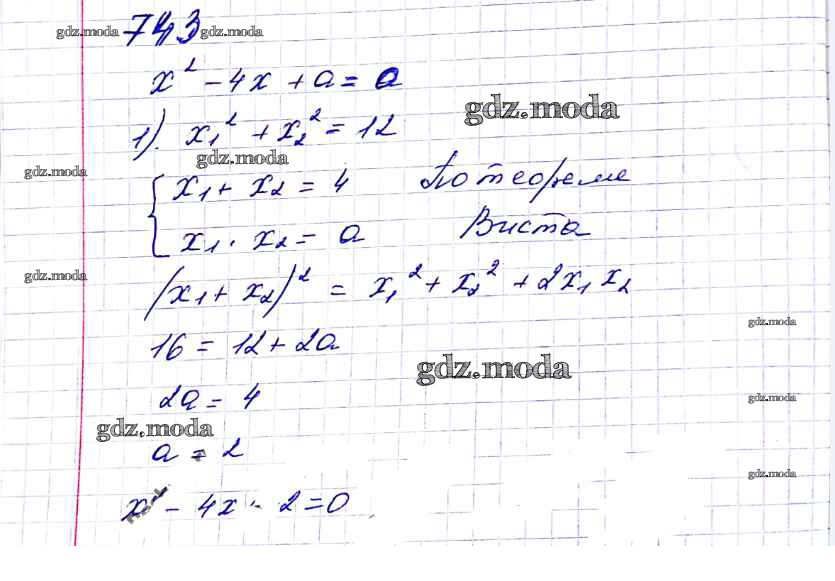 743
gdz.moda gdz.moda
x² - 4x + a = 0
gdz.moda
1). x₁² + x₂² = 12
gdz.moda
gdz.moda
x₁ + x₂ = 4 По теореме
x₁ · x₂ = a Виета
gdz.moda
(x₁ + x₂)² = x₁² + x₂² + 2x₁ x₂
gdz.moda
16 = 12 + 2a
gdz.moda
2a = 4
gdz.moda
gdz.moda
a = 2
gdz.moda
x² - 4x - 2 = 0